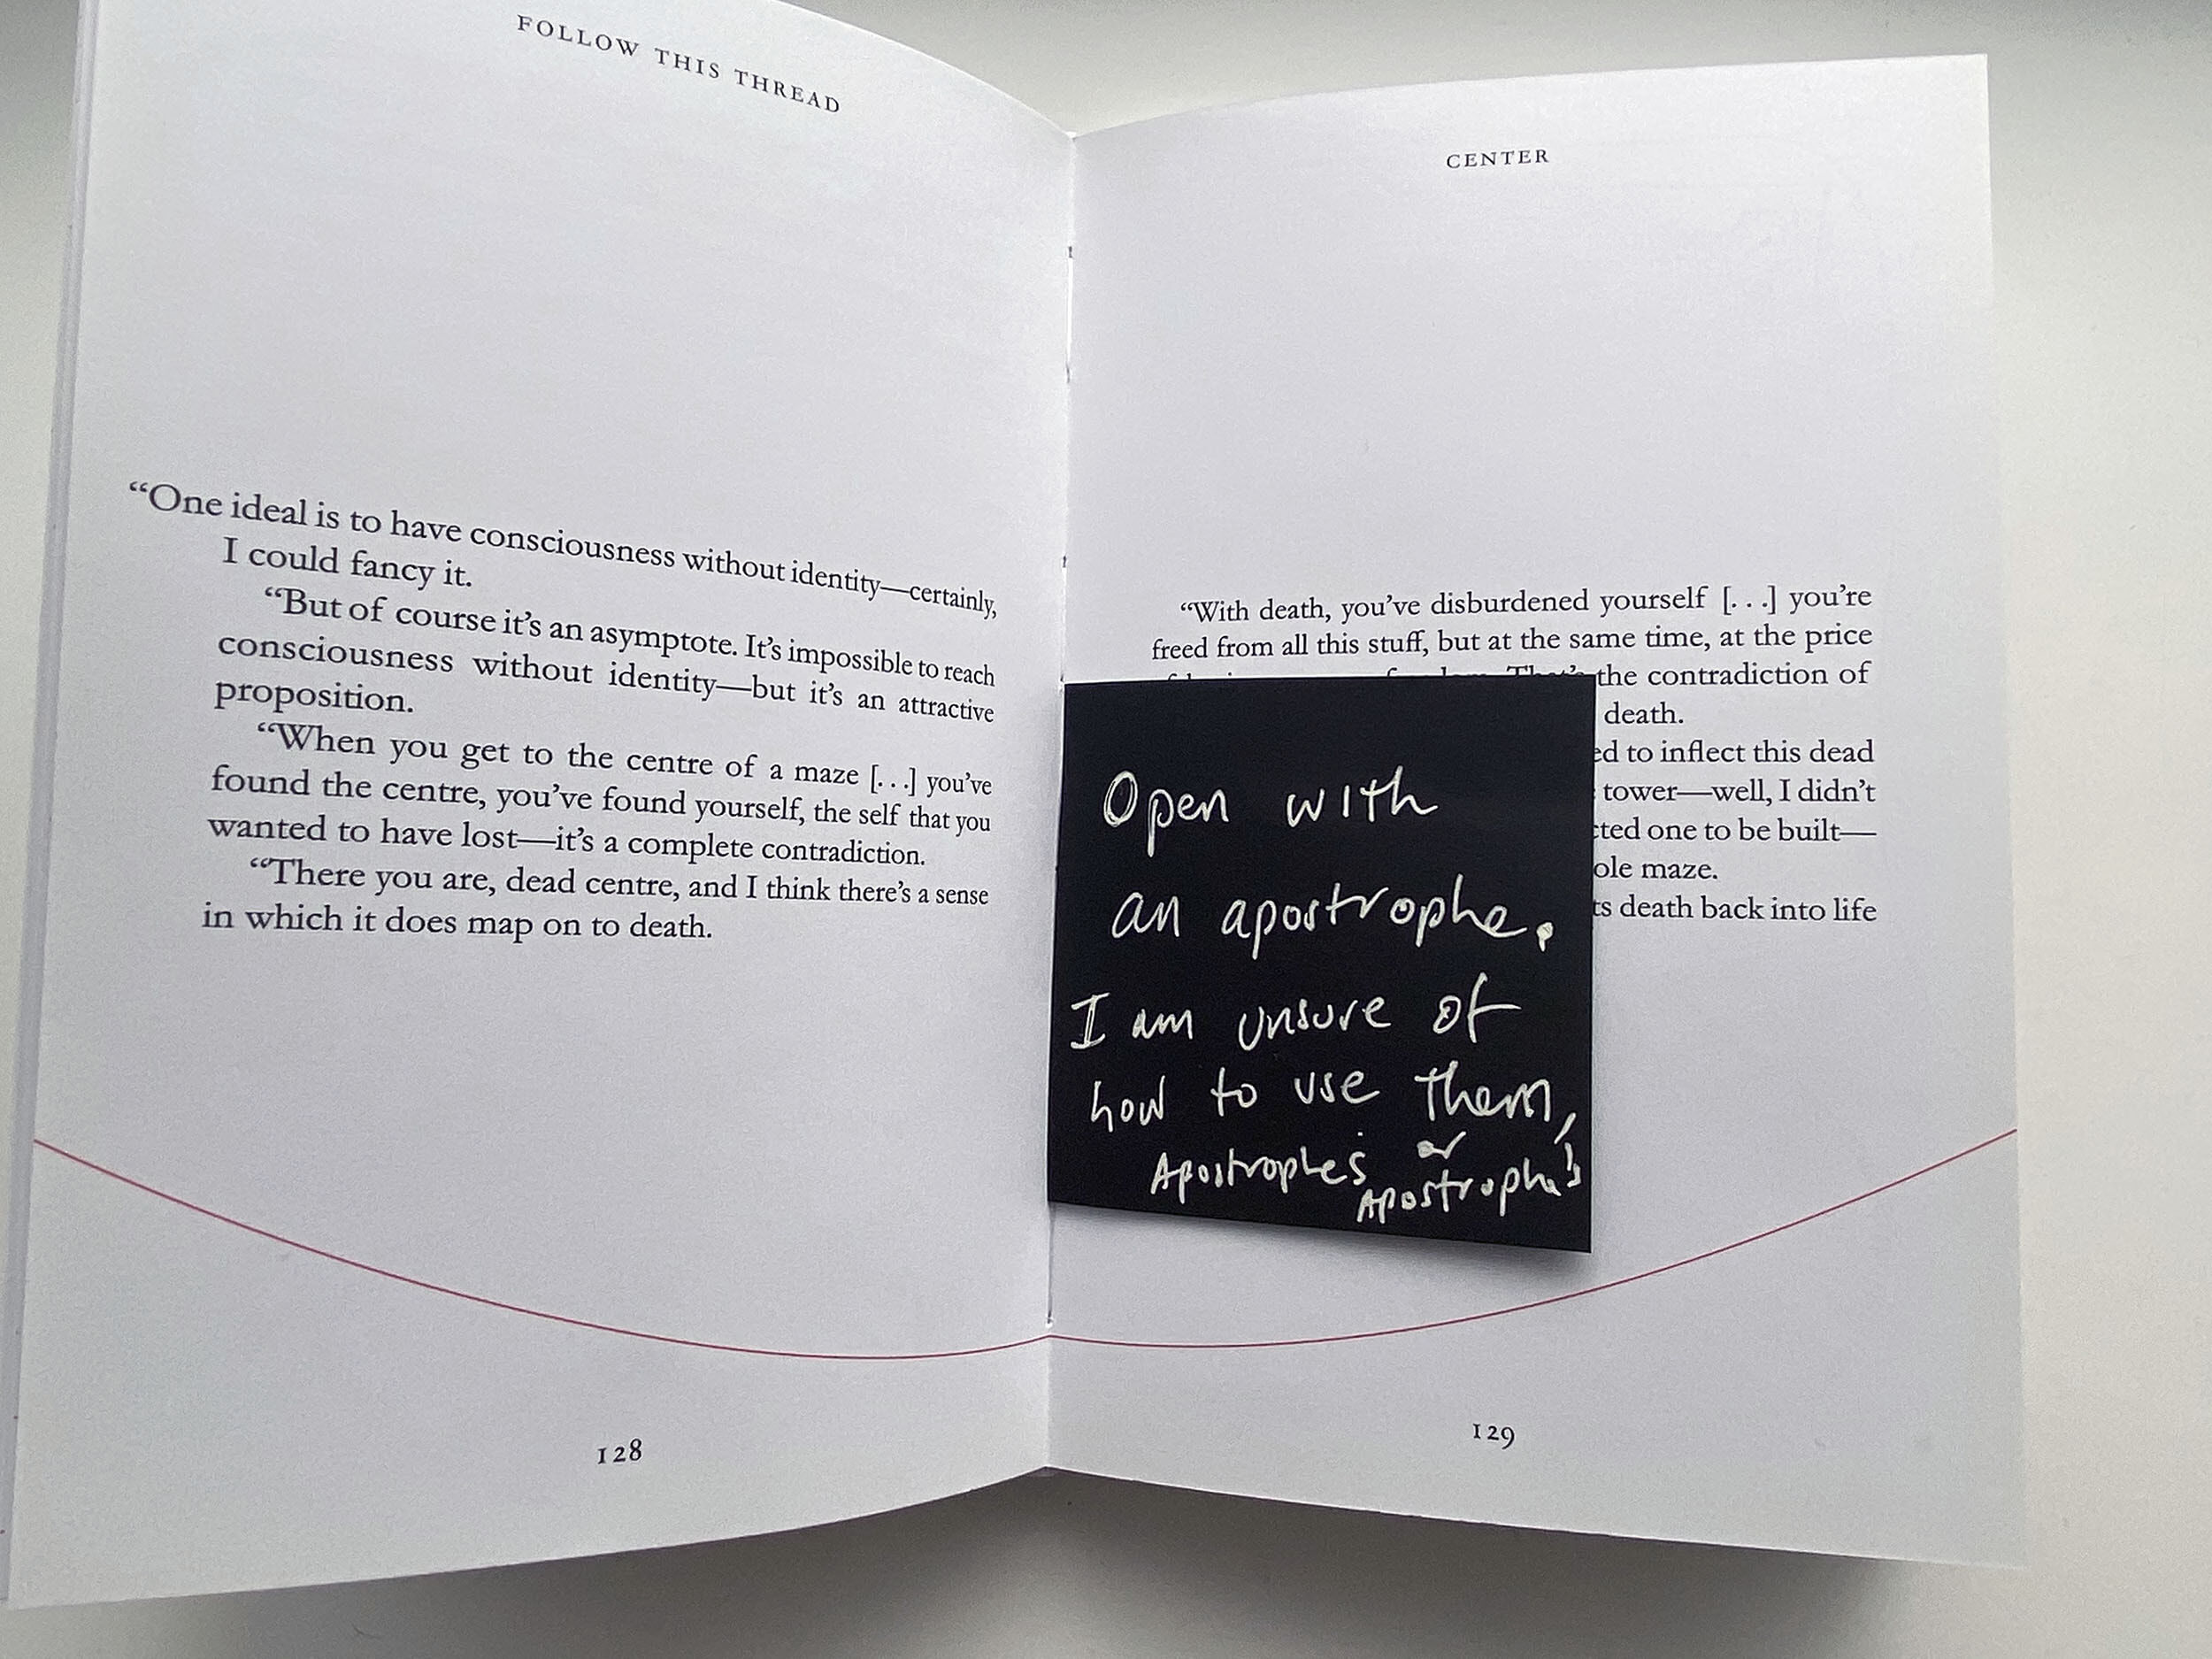 FOLLOW THIS THREAD
“One ideal is to have consciousness without identity—certainly,
I could fancy it.
“But of course it’s an asymptote. It’s impossible to reach
consciousness without identity—but it’s an attractive
proposition.
“When you get to the centre of a maze [...] you’ve
found the centre, you’ve found yourself, the self that you
wanted to have lost—it’s a complete contradiction.
“There you are, dead centre, and I think there’s a sense
in which it does map on to death.
128
CENTER
“With death, you’ve disburdened yourself [...] you’re
freed from all this stuff, but at the same time, at the price
the contradiction of
death.
to inflect this dead
tower—well, I didn’t
one to be built—
maze.
death back into life
Open with
an apostrophe.
I am unsure of
how to use them,
Apostrophes or
Apostrophe's
129